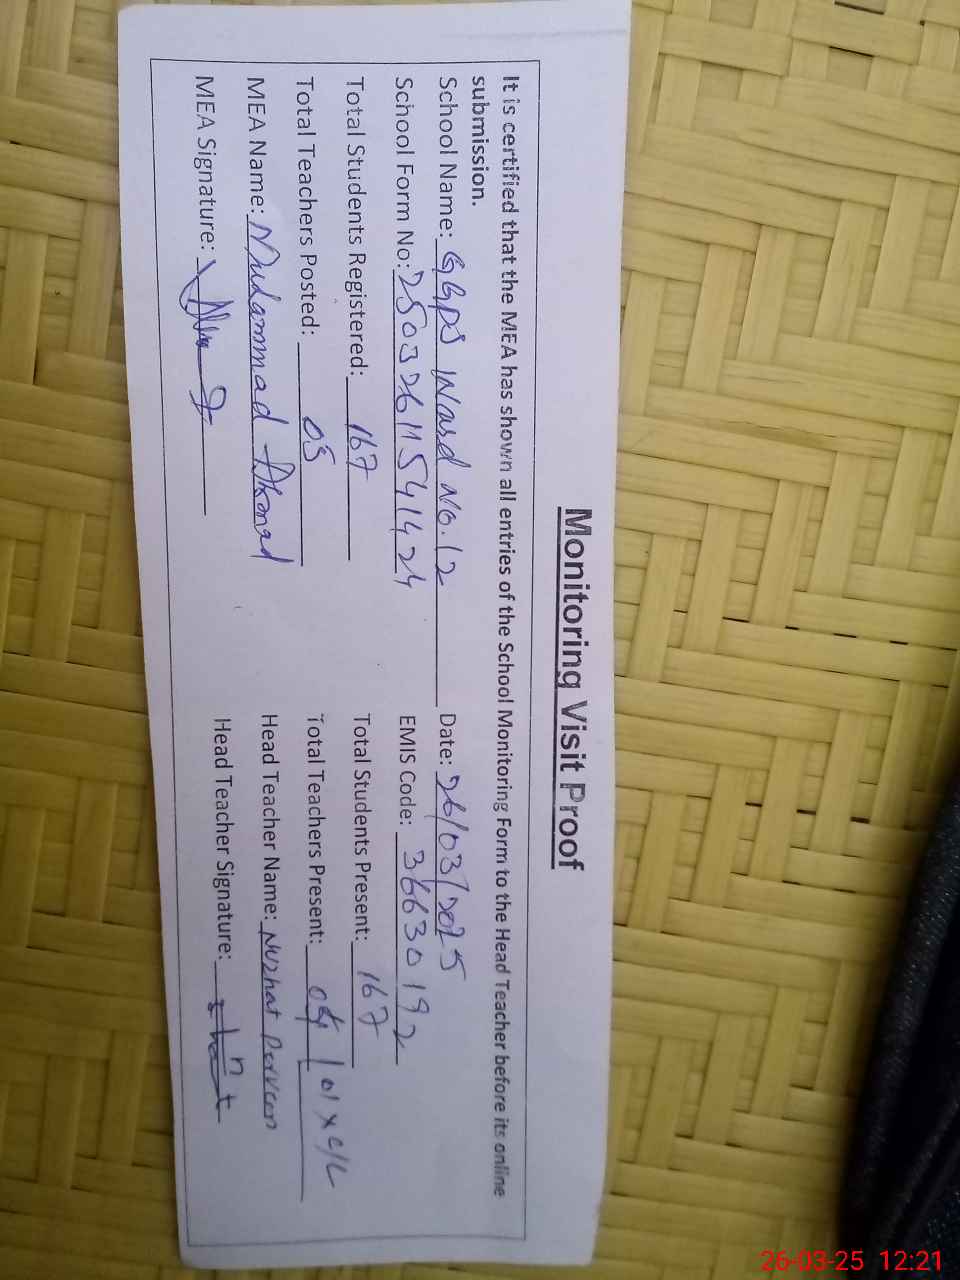 Monitoring Visit Proof
It is certified that the MEA has shown all entries of the School Monitoring Form to the Head Teacher before its online
submission.
School Name: GGPS Ward No.12 Date: 26/03/2025
School Form No: 25032611541424 EMIS Code: 36630192
Total Students Registered: 167 Total Students Present: 167
Total Teachers Posted: 05 Total Teachers Present: 04 / 01 x C/L
MEA Name: Muhammad Ahmad Head Teacher Name: Nuzhat Parveen
MEA Signature: Head Teacher Signature:
26-03-25 12:21